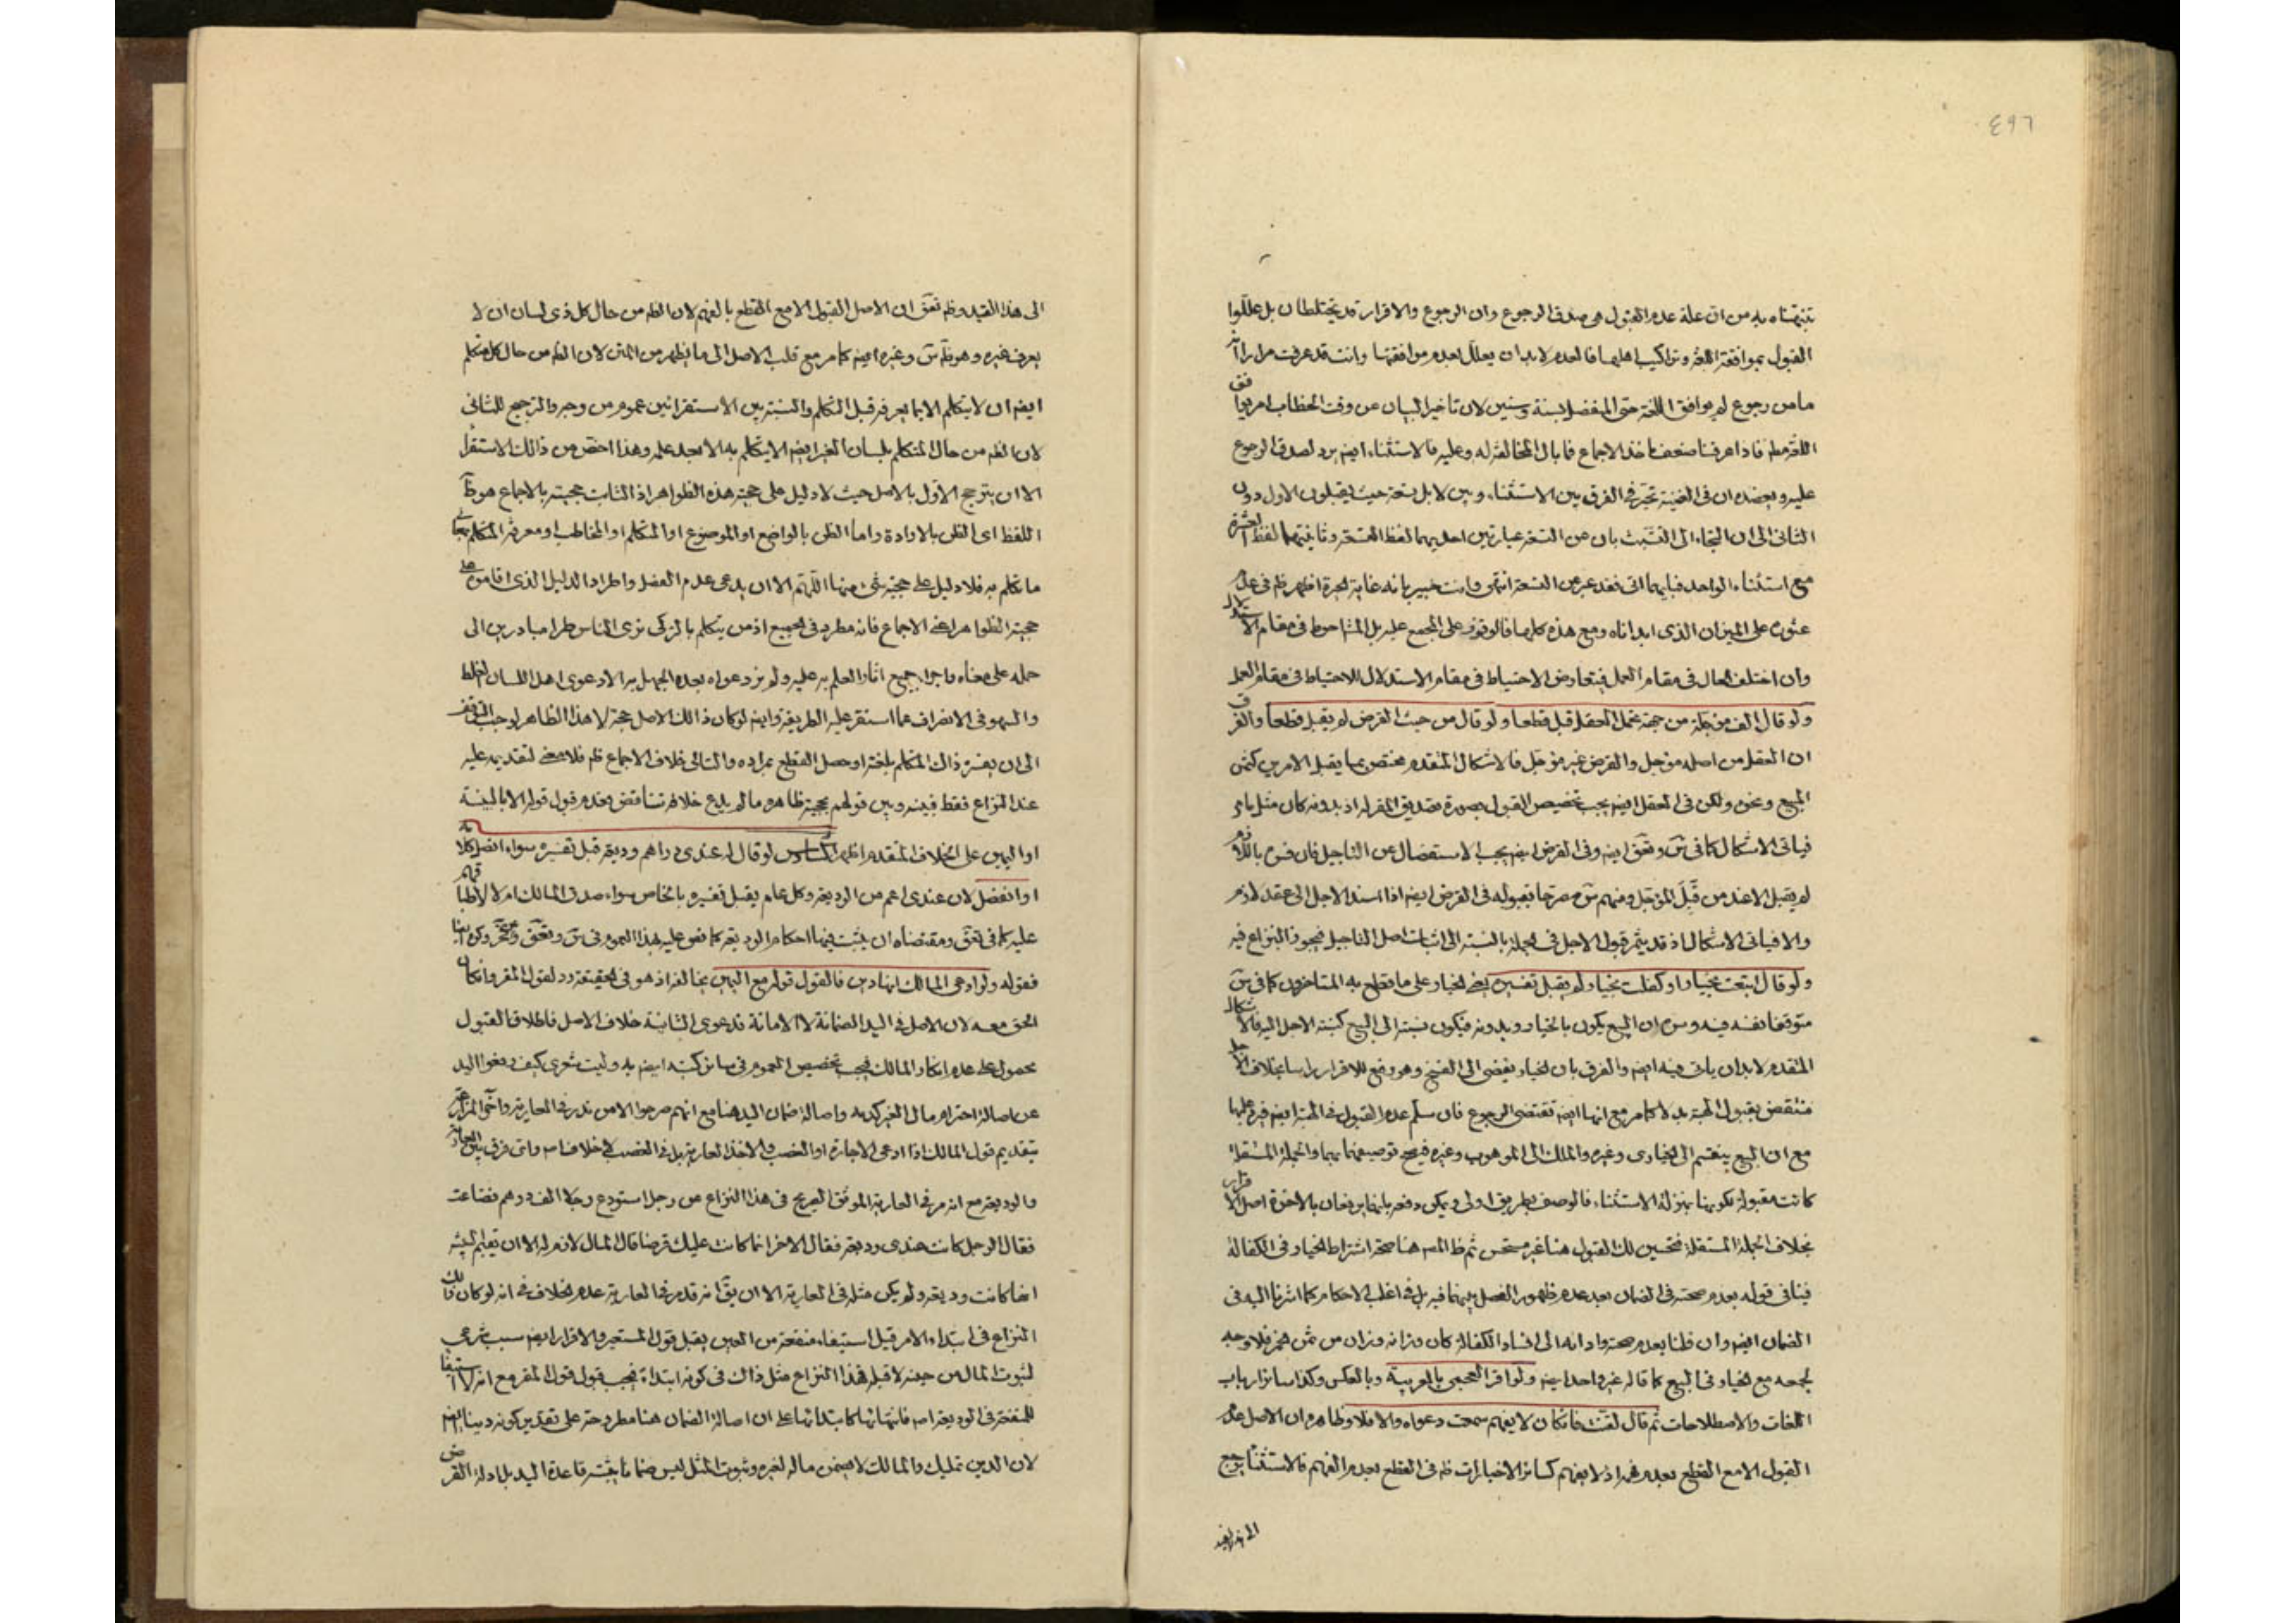 ٤٩٦
تنبهناه به من ان علة عدم القبول هى صدق الرجوع وان الرجوع والاقرار قد يختلطان بل عللوا
القبول بموافقة اللغة وتراكيب اهلها فالعدم لابد ان يعلل بعدم موافقتها وانت قد عرفت مرارا
ما من رجوع لم يوافق اللغة حتى المنفصل بسنة وسنين لان تاخير البيان عن وقت الخطاب امر يوافق
اللغة فاذا عرفنا ضعف ماخذ الاجماع فما بال المخالفة له وعليه فالاستثناء ايضم يرد لصدق الرجوع
عليه ويعضده ان فى الغنية تحير فى الفرق بين الاستثناء وبين لا بل تسعة حيث يقبلون الاول دون
الثانى الى ان التجاء الى التشبث بان عن التسعة عبارتين احديهما لفظ التسعة وثانيتهما لفظ العشرة
مع استثناء الواحد فبايهما اتى فقد عبر عن التسعة انتهى وانت خبير بانه غاية الحيرة اظهر ظم فى عدم
عثوره على الميزان الذى ابدناه ومع هذه كلها فالوقوف على المجمع عليه بل المشاحوط فى مقام الاستدلال
وان اختلف الحال فى مقام العمل فيتعارض الاحتياط فى مقام الاستدلال للاحتياط فى مقام العمل
ولو قال الف مؤجلة من جهة تحمل العقل قبل قطعا ولو قال من حيث القرض لم يقبل قطعا والفرق
ان العقل من اصله مؤجل والقرض غير مؤجل فالاشكال المتقدم مختص بما يقبل الامرين كثمن
المبيع ونحوه ولكن فى العقل ايضم يجب تخصيص القبول بصورة تصديق المقر له اذ بدونه كان مثل ما مر
فياتى الاشكال كما فى س وتعق ايضم وفى القرض ايضم يجب الاستفصال عن التاجيل فان فسره باللازم
لم يقبل الا عند من قبل المؤجل ومنهم س مصرحا بقبوله فى القرض ايضم اذا اسند الاجل الى عقد لازم
والا فياتى الاشكال اذ قد يثمر قبول الاجل فى الجملة بالنسبة الى اثبات اصل التاجيل فيجوز النزاع فيه
ولو قال ابتعت بخيار او كفلت بخيار لم يقبل تفسيره بعض الخيار على ما قطع به المتاخرون كما فى س
متوقفا نفسه فيه ومن ان البيع يكون بالخيار وبدونه فيكون نسبته الى البيع كنسبة الاجل اليه فالاشكال
المتقدم لابد ان ياتى فيه ايضم والفرق بان الخيار يفضى الى الفسخ وهو رفع للاقرار راسا بخلاف الاجل
منتقض بقبول الهبة بدلا كما مر مع انها ايضم تقتضى الرجوع فان سلم عدم القبول فى الهبة ايضم فيه عليها
مع ان البيع ينقسم الى الخيارى وغيره والملك الى الموهوب وغيره فيصح توصيفهما بهما والجملة المستقلة
كانت مقبولة لكونها بمنزلة الاستثناء فالوصف بطريق اولى ويمكن دفعه بانهما يرفعان بالاخرة اصل الاقرار
بخلاف الجملة المستقلة فتحسين لك القبول هنا غير مستحسن ثم ظ المص هنا صحة اشتراط الخيار فى الكفالة
فينافى قوله بعدم صحته فى الضمان بعد عدم ظهور الفصل بينهما فيه بل فى اغلب الاحكام كما اشرنا اليه فى
الضمان ايضم وان ظنا بعدم صحته وادائه الى افساد الكفالة كان وزانه وزان من ثمن خمر فلا وجه
لجمعه مع الخيار فى البيع كما قاله غير واحد ايضم ولو اقر العجمى بالعربية وبالعكس وكذا سائر ارباب
اللغات والاصطلاحات ثم قال لقنت فان كان لا يفهم سمعت دعواه والا فلا وظاهره ان الاصل عدم
القبول الا مع القطع بعدم فهمه اذ لا يفهم كسائر الاخبارات ظم فى القطع بعدم الفهم فالاستثناء راجع
الى هذا القيد
الى هذا القيد وظم تعق ان الاصل القبول الا مع القطع بالفهم لان الظم من حال كل ذى لسان ان لا
يعرف غيره وهو ظم س وغيره ايضم كما مر مع قلب الاصل الى ما يظهر من المتن لان الظم من حال كل متكلم
ايضم ان لا يتكلم الا بما يعرفه قبل التكلم والنسبة بين الاستقرائين عموم من وجه والترجيح للثانى
لان الظم من حال المتكلم بلسان الغير ايضم الا يتكلم به الا بعد علمه وهذا اخص من ذلك الاستقراء
الا ان يترجح الاول بالاصل حيث لا دليل على حجية هذه الظواهر اذ الثابت حجيته بالاجماع هو ظ
اللفظ اى الظن بالارادة واما الظن بالواضع او الموضوع او المتكلم او المخاطب او معرفة المتكلم بمعانى
ما تكلم به فلا دليل على حجية شئ منها اللهم الا ان يدعى عدم الفصل واطراد الدليل الذى اقاموه على
حجية الظواهر اعنى الاجماع فانه مطرد فى الجميع اذ من يتكلم بالتركى نرى الناس طرا مبادرين الى
حمله على معناه واجراء جميع اثار العلم به عليه ولم نر دعواه بعده الجهل به الا دعوى اهل اللسان الغلط
والسهو فى الانصراف عما استقر عليه الطريقة وايضم لو كان ذلك الاصل حجة لا هذا الظاهر لوجب التوقف
الى ان يفسره ذاك المتكلم بلغته او حصل القطع بمراده والتالى خلاف الاجماع ظم فلا معنى لتقديمه عليه
عند النزاع فقط فبينه وبين قولهم بحجية ظاهره ما لم يدع خلافه تناقض بعدم قبول قوله الا بالبينة
او اليمين على الخلاف المتقدم اظهر السادس لو قال له عندى دراهم وديعة قبل تفسيره سواء اتصل كلامه
او انفصل لان عندى اعم من الوديعة وكل عام يقبل تفسيره بالخاص سواء صدق المالك ام لا لاطباقهم
عليه كما فى تعق ومقتضاه ان يثبت فيها احكام الوديعة كما نص عليه بهذا العموم فى س وتعق وكره ايضا
فقوله ولو ادعى المالك انها دين فالقول قوله مع اليمين يخالفه اذ هو فى الحقيقة رد لقول المقر وان كان
الحق معه لان الاصل فى اليد الضمانة لا الامانة فدعوى الثانية خلاف الاصل فاطلاق القبول
محمول على عدم انكار المالك فيجب تخصيص العموم فى سائر كتبه ايضم به وليت شعرى كيف دفعوا اليد
عن اصالة احترام مال الغير كدمه واصالة ضمان اليد هنا مع انهم صرحوا الا من ندر فى العارية واخرى المزارعة
بتقديم قول المالك اذا ادعى الاجارة او الغصب والاخذ العارية بل فى الغصب لا خلاف اصم واى فرق بين العارية
والوديعة مع انه مر فى العارية الموثق الصريح فى هذا النزاع عن رجل استودع رجلا الف درهم فضاعت
فقال الرجل كانت عندى وديعة فقال الاخر انما كانت عليك قرضا قال المال لازم له الا ان يقيم البينة
انها كانت وديعة ولم يكن مثله فى العارية الا ان يق انه قد مر فى العارية عدم الخلاف فى انه لو كان ذلك
النزاع فى ابتداء الامر قبل استيفاء منفعة من العين يقبل قول المستعير والاقرار ايضم سبب شرعى
لثبوت المال من حينه لا قبله فهذا النزاع مثل ذاك فى كونه ابتداء فيجب قبول قول المقر مع انه لا استيفاء
للمنفعة فى الوديعة اصم فانتهائها كابتدائها على ان اصالة الضمان هنا مطروحة على تقدير كونه دينا ايضم
لان الدين تمليك والمالك لا يضمن ماله لغيره وثبوت المثل ليس ضمانا يثبته قاعدة اليد بل ادلة القرض